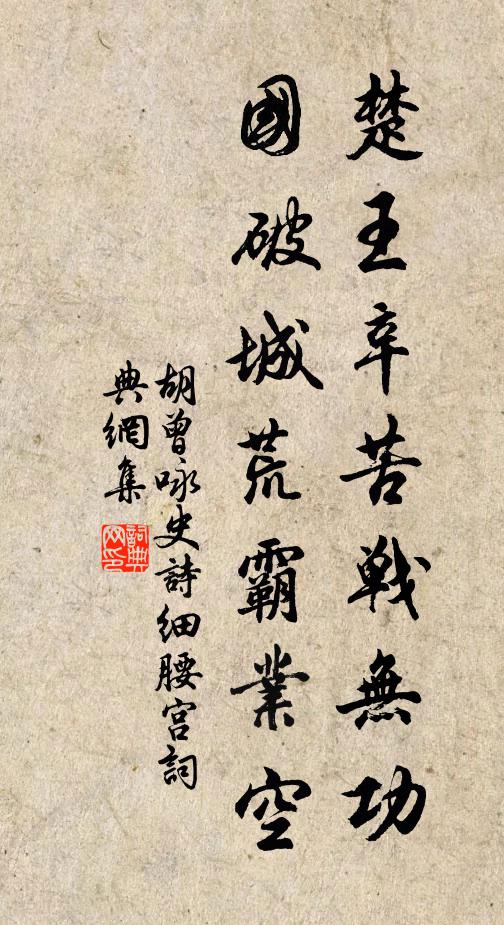 楚王辛苦戰無功
國破城荒霸業空
胡曾咏史詩細腰宮詞
典網集
詞典網印